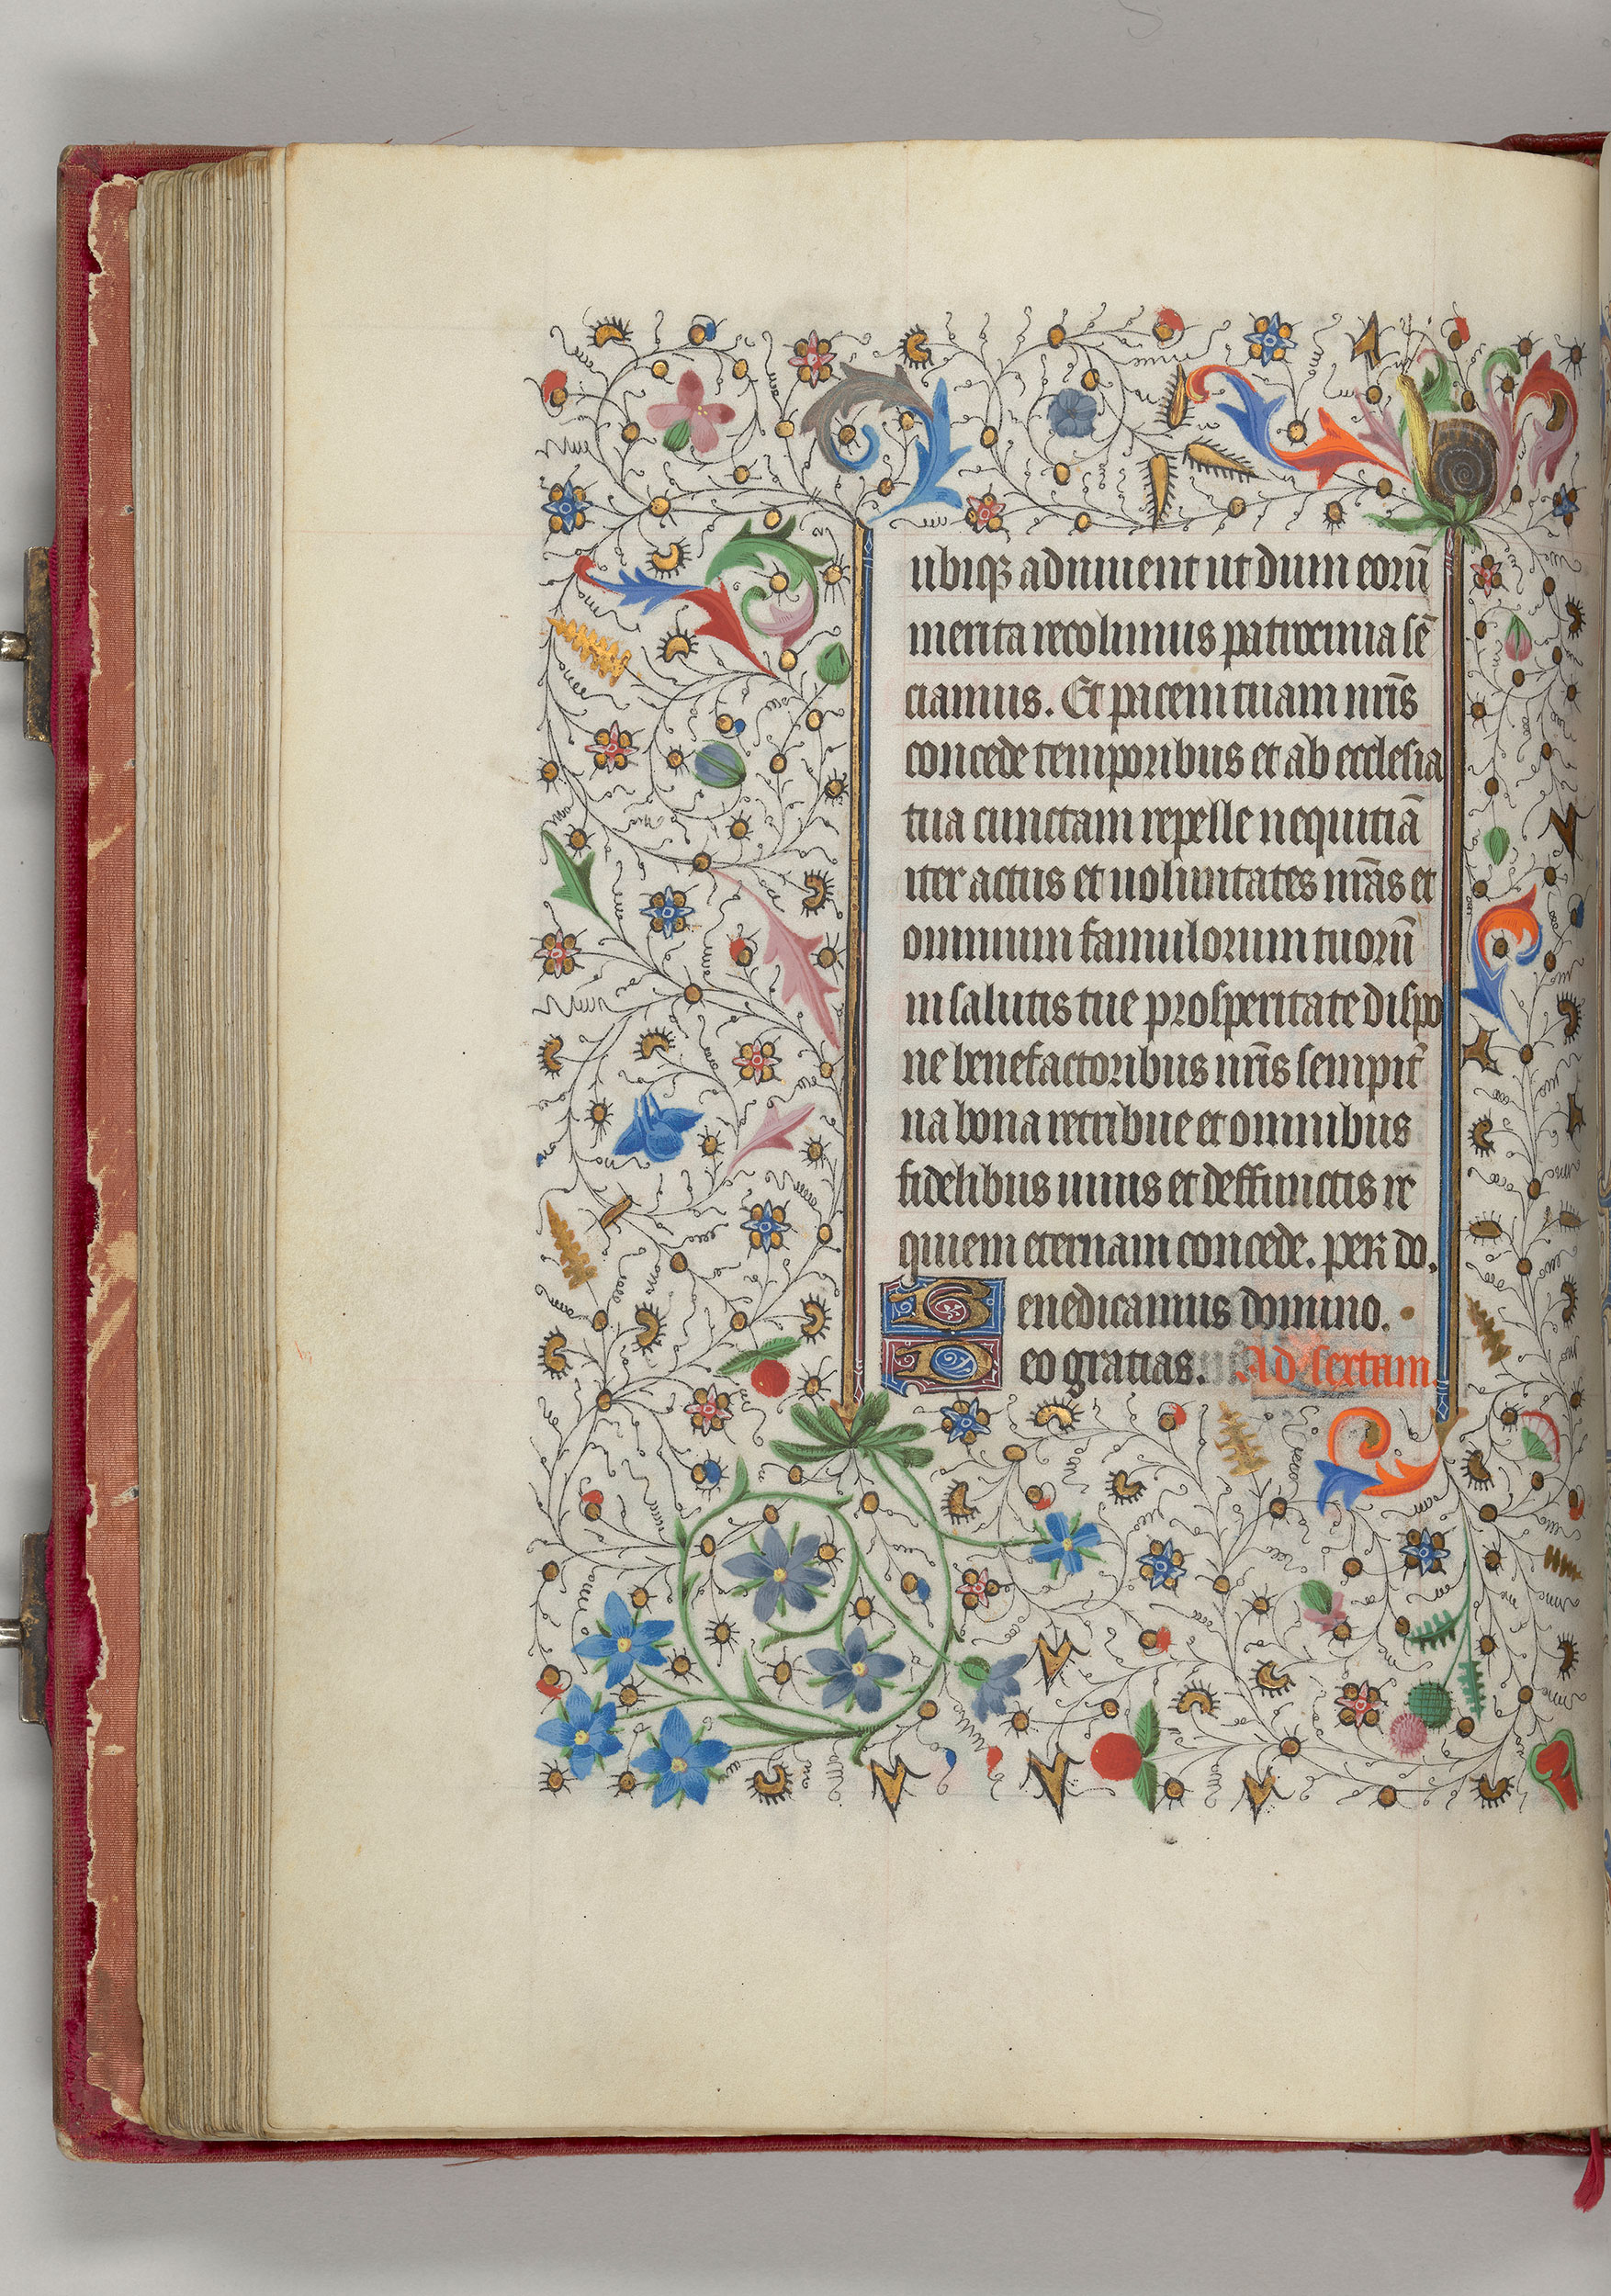 ubiqꝫ adiuuent ut dum eorū
merita recolimus patrocinia sē
ciamus. Et pacem tuam nr̄is
concede temporibus et ab ecclesia
tua cunctam repelle nequitiā
iter actus et uoluntates nr̄as et
omnium famulorum tuorū
in salutis tue prosperitate dispo
ne benefactoribus nr̄is sempit̄
na bona retribue et omnibus
fidelibus uiuis et deffunctis re
quiem eternam concede. per do.
Benedicamus domino.
Deo gratias. Ad sextam.